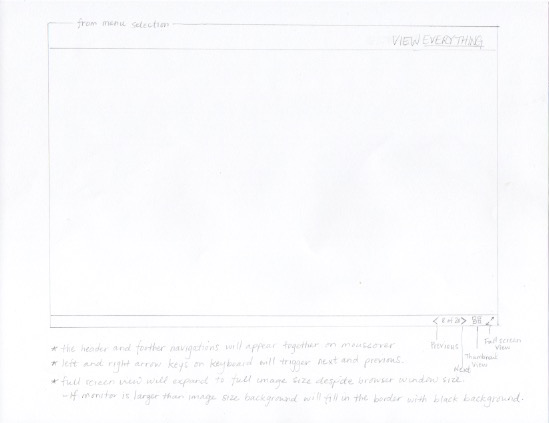 from menu selection
VIEW EVERYTHING
< of >
Previous
Next
Thumbnail
View
Full screen
view
* the header and footer navigations will appear together on mouseover
* left and right arrow keys on keyboard will trigger next and previous.
* full screen view will expand to full image size despite browser window size.
- If monitor is larger than image size background will fill in the border with black background.